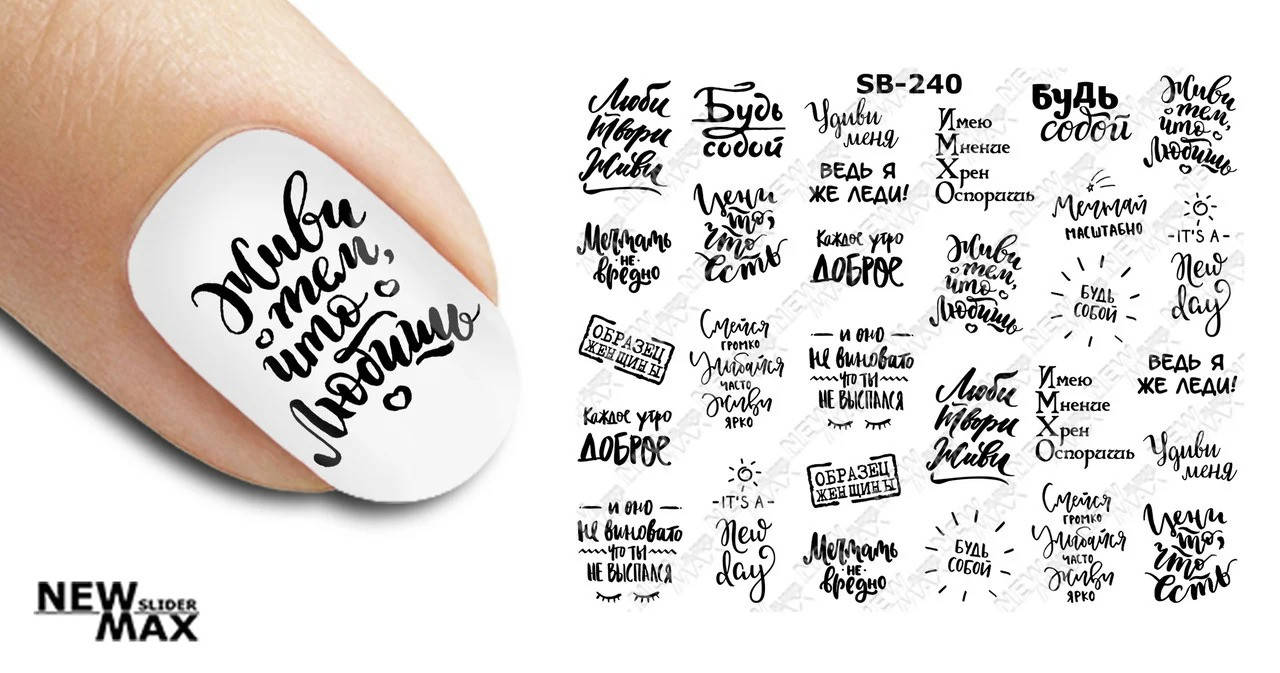 Живи
тем,
что
Любишь
NEW
SLIDER
MAX
SB-240
Люби
Твори
Живи
Мечтать
не
вредно
ОБРАЗЕЦ
ЖЕНЩИНЫ
Каждое утро
ДОБРОЕ
и оно
Не виновато
что ты
не выспался
Будь
собой
Цени
то,
что
есть
Смейся
громко
Улыбайся
часто
Живи
ярко
-IT'S A-
New
day
Удиви
меня
ВЕДЬ Я
ЖЕ ЛЕДИ!
Каждое утро
ДОБРОЕ
и оно
Не виновато
что ты
не выспался
ОБРАЗЕЦ
ЖЕНЩИНЫ
Мечтать
не
вредно
Имею
Мнение
Хрен
Оспоришь
Живи
тем,
что
Любишь
Люби
Твори
Живи
БУДЬ
СОБОЙ
БуДЬ
собой
Мечтай
масштабно
БУДЬ
СОБОЙ
Имею
Мнение
Хрен
Оспоришь
Смейся
громко
Улыбайся
часто
Живи
ярко
Живи
тем,
что
Любишь
-IT'S A-
New
day
ВЕДЬ Я
ЖЕ ЛЕДИ!
Удиви
меня
Цени
то,
что
есть